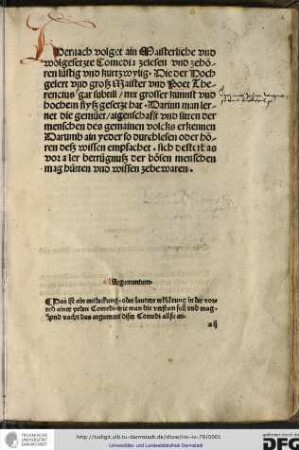 Hernach volget ain Maisterliche vnd
wolgesetzte Comedia zelesen vnd zehö-
ren lüstig vnd kurtzwylig. Die der Hoch
gelert vnd groß Maister vnd Poet The
rencius gar subtill / mit grosser kunnst vnd
hochem flyß gesetzt hat. Darinn man ler-
net die gemüet / aigenschafft vnd sitten der
menschen des gemainen volcks erkennen
Darumb ain yeder so durchlesen oder hö-
ren deß wissen empfachet. sich dest
vor aller betrügnuß der bösen menschen
mag hütten vnd wissen zebewaren.
Argumentum.
Das ist ain entdeckung. oder lautere erklärung in der vor
red ainer yeden Comedi wie man die verstan soll vnd mag.
vnd vacht das argument diser Comedi allso an.
a ij
TECHNISCHE
UNIVERSITÄT
DARMSTADT
http://tudigit.ulb.tu-darmstadt.de/show/inc-iv-79/0001
Universitäts- und Landesbibliothek Darmstadt
gefördert durch die
DFG